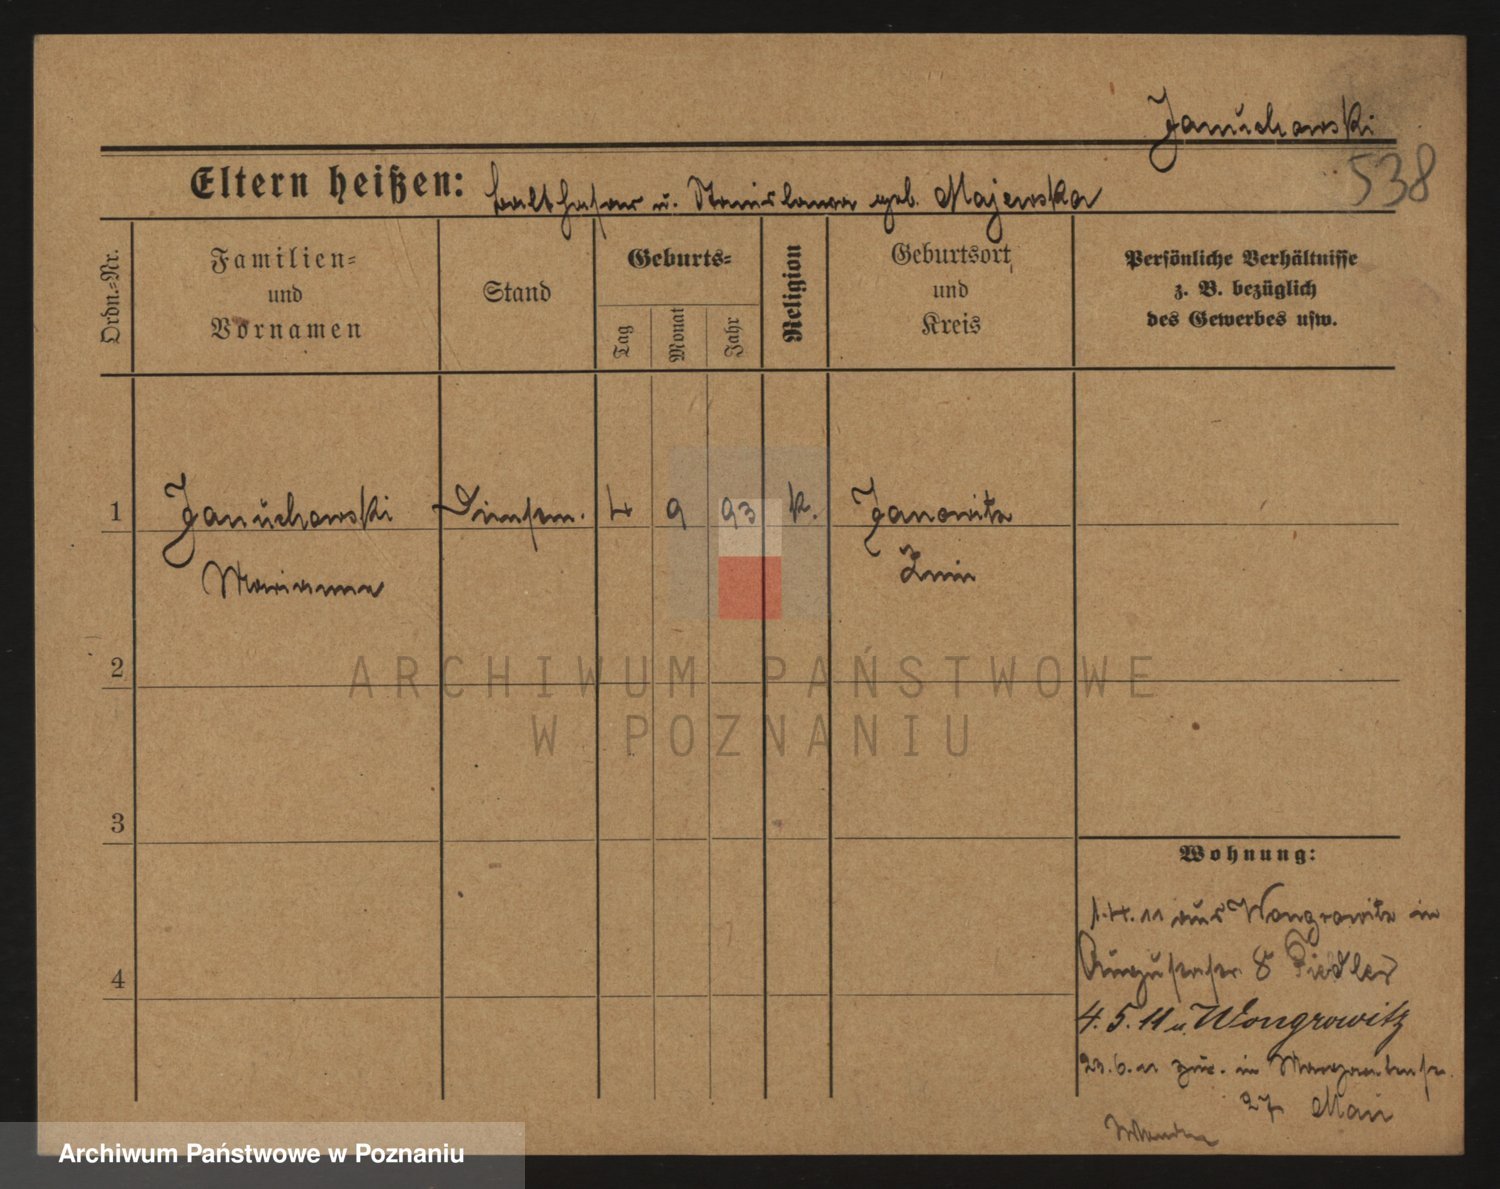 Januchowski
538
Eltern heißen: Balthasar u. Stanislawa geb. Majewska
Ordn.-Nr.
Familien-
und
Vornamen
Stand
Geburts-
Tag
Monat
Jahr
Religion
Geburtsort
und
Kreis
Persönliche Verhältnisse
z. B. bezüglich
des Gewerbes usw.
1 Januchowski 4 9 93 k. Janowitz
Marianna Znin
2
3
4
ARCHIWUM PAŃSTWOWE
W POZNANIU
Wohnung:
1.4.11 aus Wongrowitz in
Augustastr. 8 Fiedler
4. 5. 11 n. Wongrowitz
23.6.11 zur. in Margaretenstr.
27
Archiwum Państwowe w Poznaniu